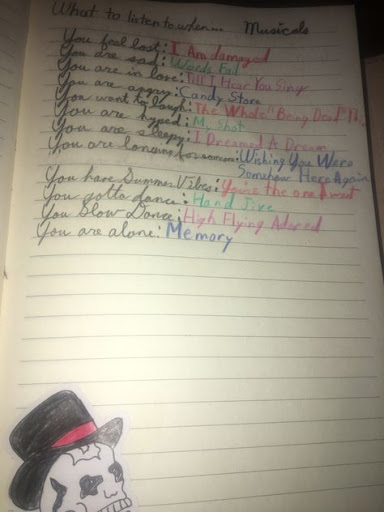 What to listen to when... Musicals
You feel lost: I Am damaged
You are sad: Words Fail
You are in love: Till I Hear You Sing
You are angry: Candy Store
You want to laugh: The Whole "Being Dead"
You are hyped: M. Shot
You are sleepy: I Dreamed A Dream
You are longing for someone: Wishing You Were
Somehow Here Again
You have Summer Vibes: You're the one
You gotta dance: Hand Jive
You Slow Dance: High Flying Adored
You are alone: Memory